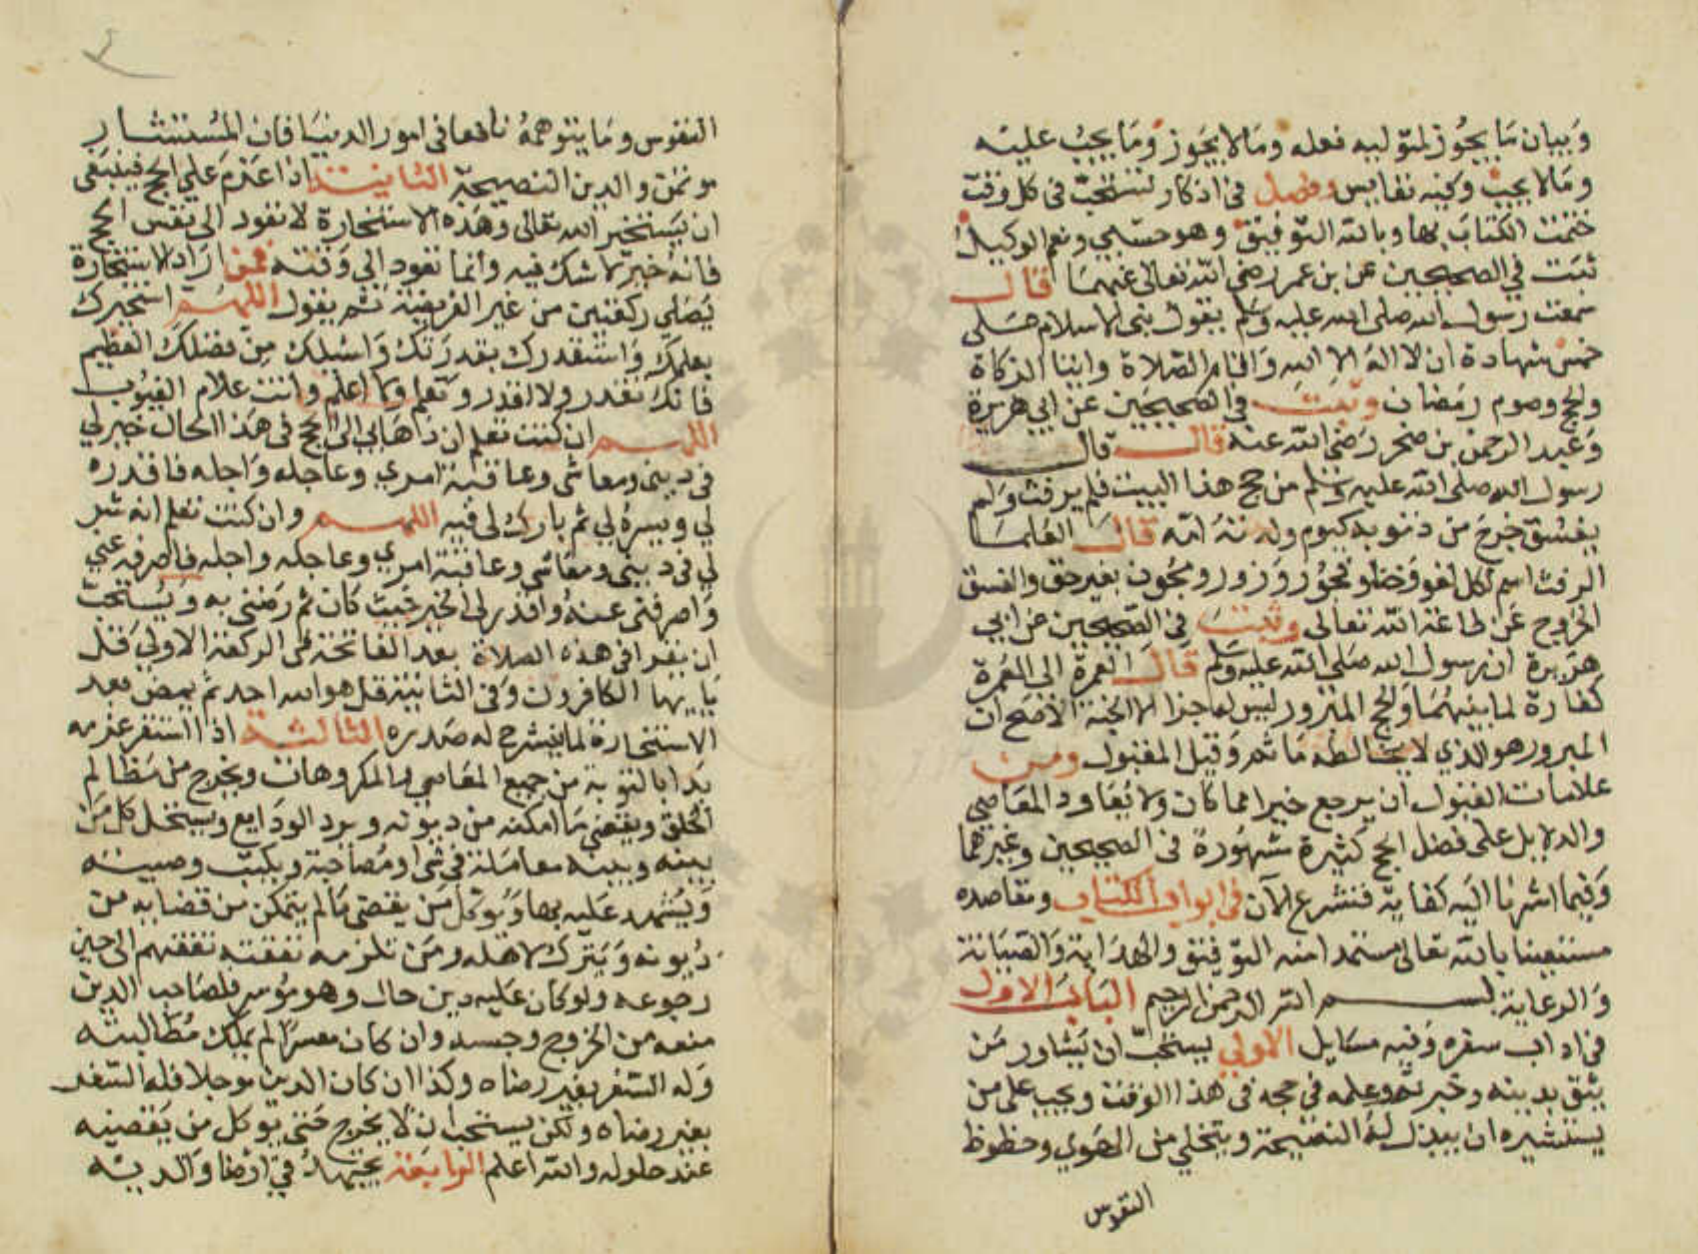 وَبيان مَا يجُوز لمتوليه فعله ومَا لا يجَوز ومَا يجبُ عليه
ومَالا يجب وفيه نفايس وفصل في اذكار تستحبّ في كل وقت
ختمت الكتابَ بها وبالله التوفيق وهو حسبي ونعم الوكيل
ثبت في الصحيحين عن بن عمر رضي الله تعالى عنهمَا قال
سمعت رسول الله صلى الله عليه وسلم يقول بني الاسلام على
خمس شهادة ان لا اله الا الله وَاقام الصّلاة وايتا الزكاة
والحج وصوم رمَضان وثبت في الصحيحين عن ابي هريرة
وَعبد الرحمن بن صخر رَضي الله عنه قال قال
رسول الله صلى الله عليه وسلم من حج هذا البيت فلم يرفث وَلم
يفسق خرجَ من ذنوبه كيوم ولدته امّه قال العُلمَا
الرفث اسم لكل لغو وَخطا وفجوُر وَزور ومجُون بغير حق والفسق
الخروج عَن طاعَة الله تعالى وثبتَ في الصّحيحين عن ابي
هرَيرة ان رسول الله صَلى الله عليه وسلم قال العمرة الى العُمرة
كفارة لما بينهُمَا وَالحج المبرور ليس له جزا الا الجنة الاصَح ان
المبرور هو الذي لا يخالطه مَاثم وَقيل المقبول ومن
علامات القبول ان يرجع خيرا مما كان ولا يُعاود المعَاصي
والدلايل على فضل الحج كثيرة مشهُورة في الصحيحين وغيرهما
وَفيما اشرنا اليَه كفاية فنشرع الآن في ابواب الكتاب ومقاصده
مستعينا بالله تعالى مستمدا منه التوفيق والهدَاية وَالصّيَانة
وَالرعاية بسم الله الرحمن الرحيم البَابَ الاول
في اداب سفره وَفيه مسَايل الاولي يستحبّ ان يَشاور مَن
يثق بدينه وخبرته وعلمه في حجه في هذا الوقت ويجب على من
يستشيره ان يبذل لهُ النصيحة ويتخلي من الهَوي وحظوظ
النفوس
النفوس ومَا يتوهمهُ نافعا في امور الدنيَا فان المُستشار
موتمن والدين النصيحَة الثانيَة اذا عَزمَ علي الحج فينبغى
ان يَستخير الله تعَالى وهَذه الاستخارة لا تعود الى نفس الحج
فانهُ خيرٌ لا شك فيه وانما تعود الي وَقته فمن ارَاد الاستخارة
يُصَلي ركعتين من غير الفريضَة ثم يقول اللهمّ استخيرك
بعلمكَ وَاستقدرك بقدرَتك وَاسْئلك مِن فضلكَ العَظيم
فانك تقدر ولا اقدر وتَعلم ولا اعلم وانت علام الغيُوب
اللهم ان كنت تعلم ان ذهَابي الى الحج في هَذا الحَال خير لي
في ديني ومعَاشي وعاقبة امري وعاجله وَاجله فاقدره
لي ويسرهُ لي ثم بارك لي فيه اللهم وان كنت تعلم انه شر
لي في ديني ومعَاشي وعاقبة امري وعاجله واجله فاصرفه عني
وَاصرفني عنهُ واقدر لي الخير حَيث كان ثم رَضني به ويُستحبّ
ان يقرا في هذه الصلاة بعد الفاتحة في الركعة الاولي قل
يَايهَا الكافرون وَفي الثانية قل هو الله احد ثم يمضي بعد
الاستخارة لما ينشرح له صَدره الثالثة اذا استقر عزمه
بَدا بالتوبة من جميع المعَاصي والمكروهَات ويخرج من مَظالم
الخلق ويقضي مَا امكنه من ديونه ويرد الودَايع ويستحل كل مَن
بينه وبينه معاملة في شي او مُصَاحبة ويكتب وصيته
وَيُشهد عَليه بهَا وَيُوكل مَن يقضي مَالم يتمكن من قضايه من
دُيونه وَيَترك لاهله ومَن تلزمه نفقته نفقتهم الى حين
رجوعه ولو كان عَليه دين حال وهو مُوسر فلصَاحب الدين
منعه من الخروج وحبسه وان كان معسرًا لم يملك مُطالبته
وَله السَّفر بغير رضاه وكذا ان كان الدين موجلا فله السَّفر
بغير رضاه ولكن يستحب ان لا يخرج حَتى يوكل من يَقضيه
عند حلوله والله اعلم الرابعة يجتهد في ارضا وَالديه